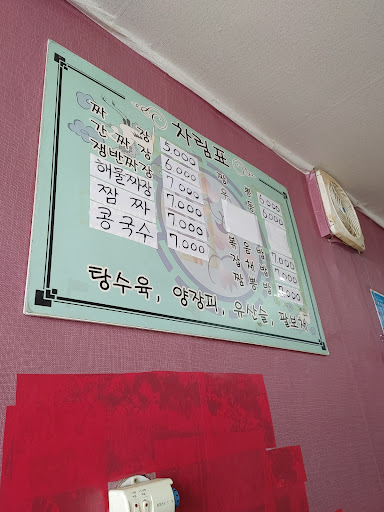 차림표
짜 장 5,000
간 짜 장 6,000
쟁반짜장 7,000
해물짜장 7,000
짬 짜 7,000
콩 국 수 7,000
짬 뽕 5,000
우 동 6,000
볶 음 밥
잡 채 밥 7,000
짬 뽕 밥 7,000
탕수육, 양장피, 유산슬, 팔보채